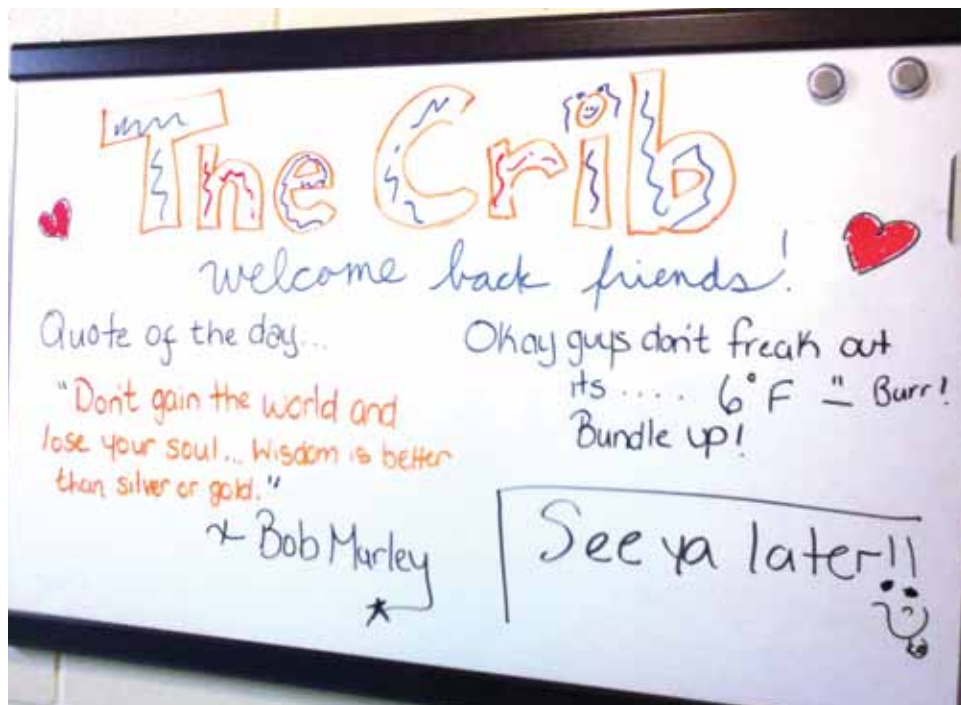 The Crib
welcome back friends!
Quote of the day...
"Don't gain the world and
lose your soul... Wisdom is better
than silver or gold."
Bob Marley
Okay guys don't freak out
its.... 6°F Burr!
Bundle up!
See ya later!!